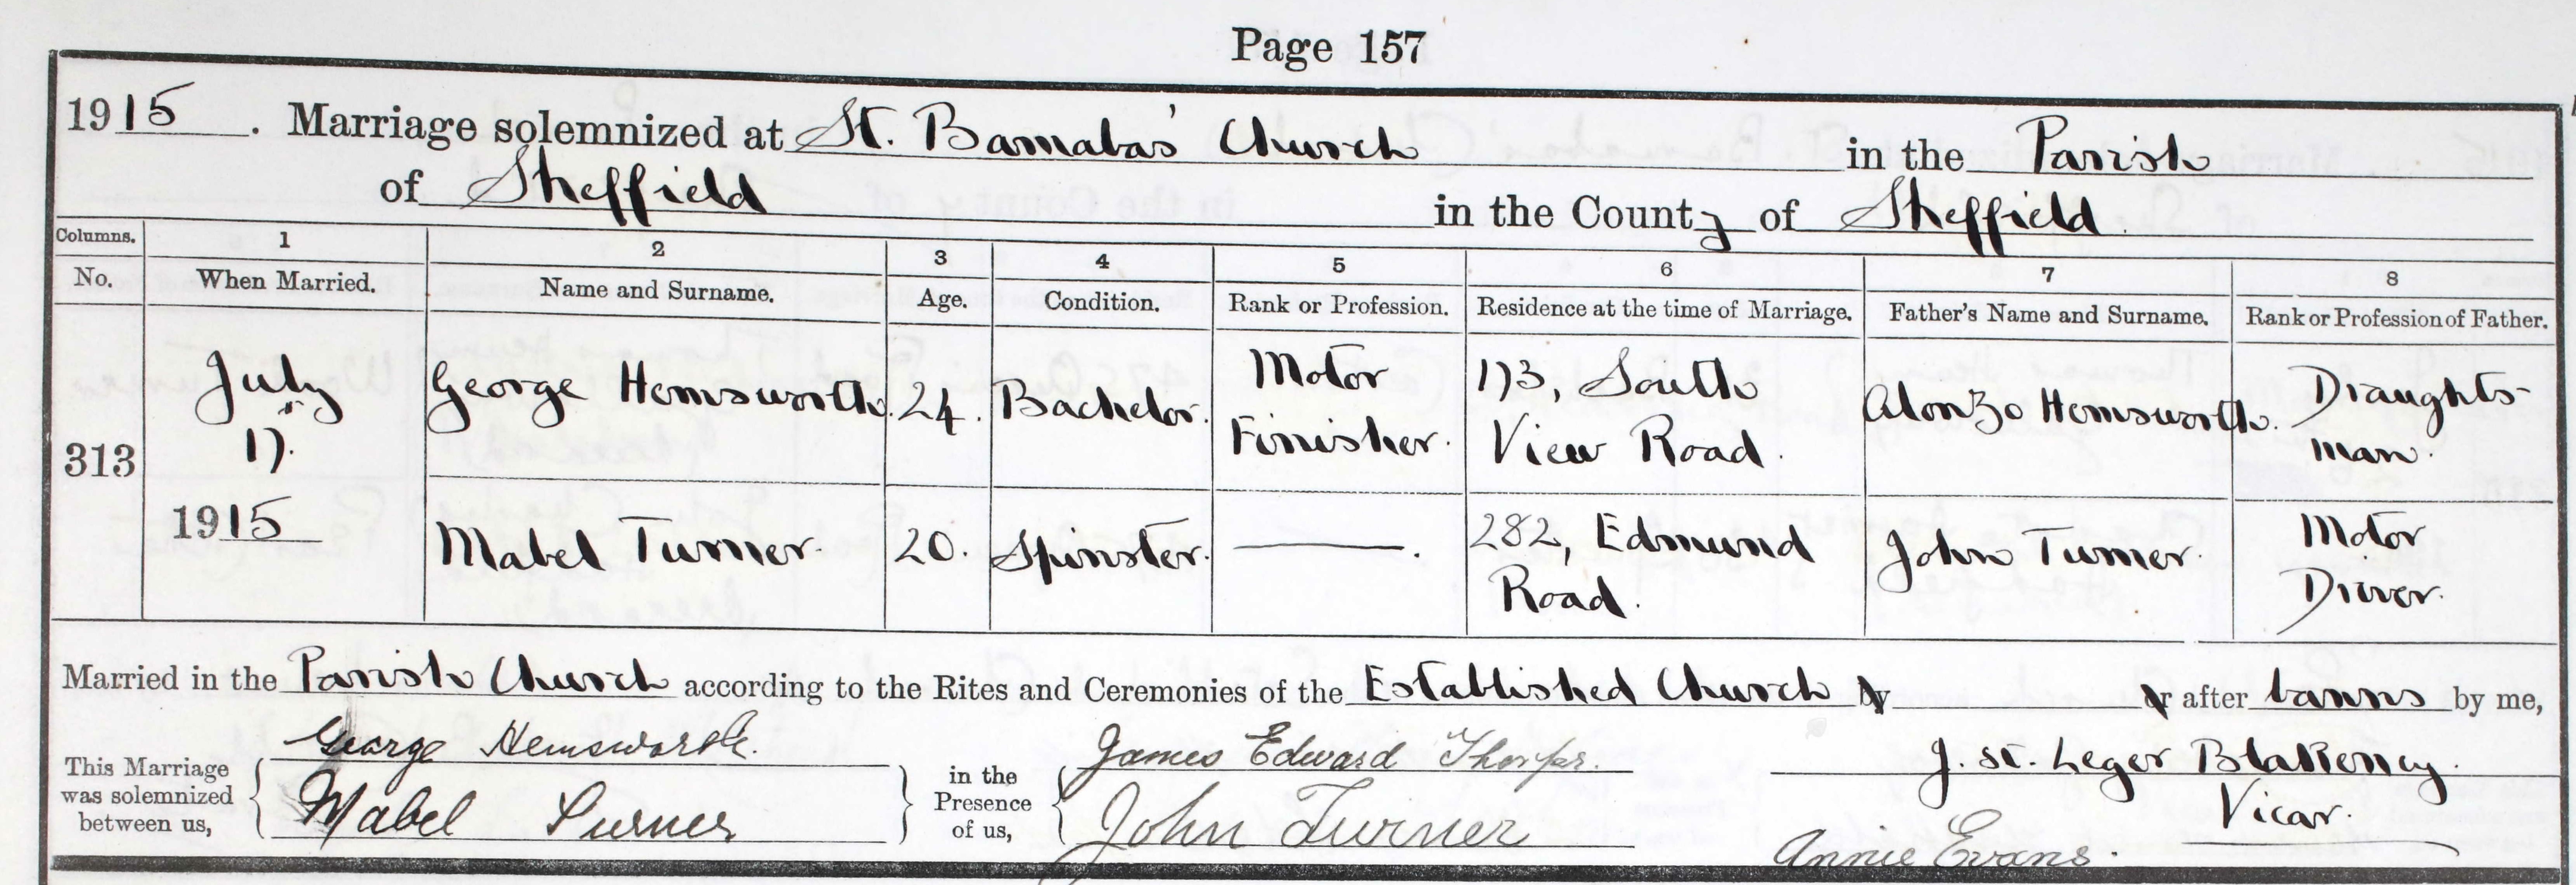 Page 157
1915. Marriage solemnized at St. Barnabas' Church in the Parish
of Sheffield in the County of Sheffield.
Columns. 1 2 3 4 5 6 7 8
No. When Married. Name and Surname. Age. Condition. Rank or Profession. Residence at the time of Marriage. Father's Name and Surname. Rank or Profession of Father.
313 July 17. 1915
George Hemsworth. 24. Bachelor. Motor Finisher. 173, South View Road. Alonzo Hemsworth. Draughts-man.
Mabel Turner. 20. Spinster. ———. 282, Edmund Road. John Turner. Motor Driver.
Married in the Parish Church according to the Rites and Ceremonies of the Established Church by or after banns by me,
George Hemsworth. James Edward Thorpe. J. St. Leger Blakeney.
This Marriage was solemnized between us, in the Presence of us,
Mabel Turner John Turner Vicar.
Annie Evans.